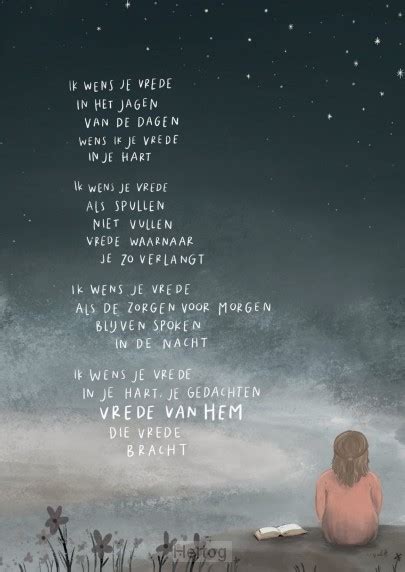 IK WENS JE VREDE
IN HET JAGEN
VAN DE DAGEN
WENS IK JE VREDE
IN JE HART
IK WENS JE VREDE
ALS SPULLEN
NIET VULLEN
VREDE WAARNAAR
JE ZO VERLANGT
IK WENS JE VREDE
ALS DE ZORGEN VOOR MORGEN
BLIJVEN SPOKEN
IN DE NACHT
IK WENS JE VREDE
IN JE HART, JE GEDACHTEN
VREDE VAN HEM
DIE VREDE
BRACHT
Hertog